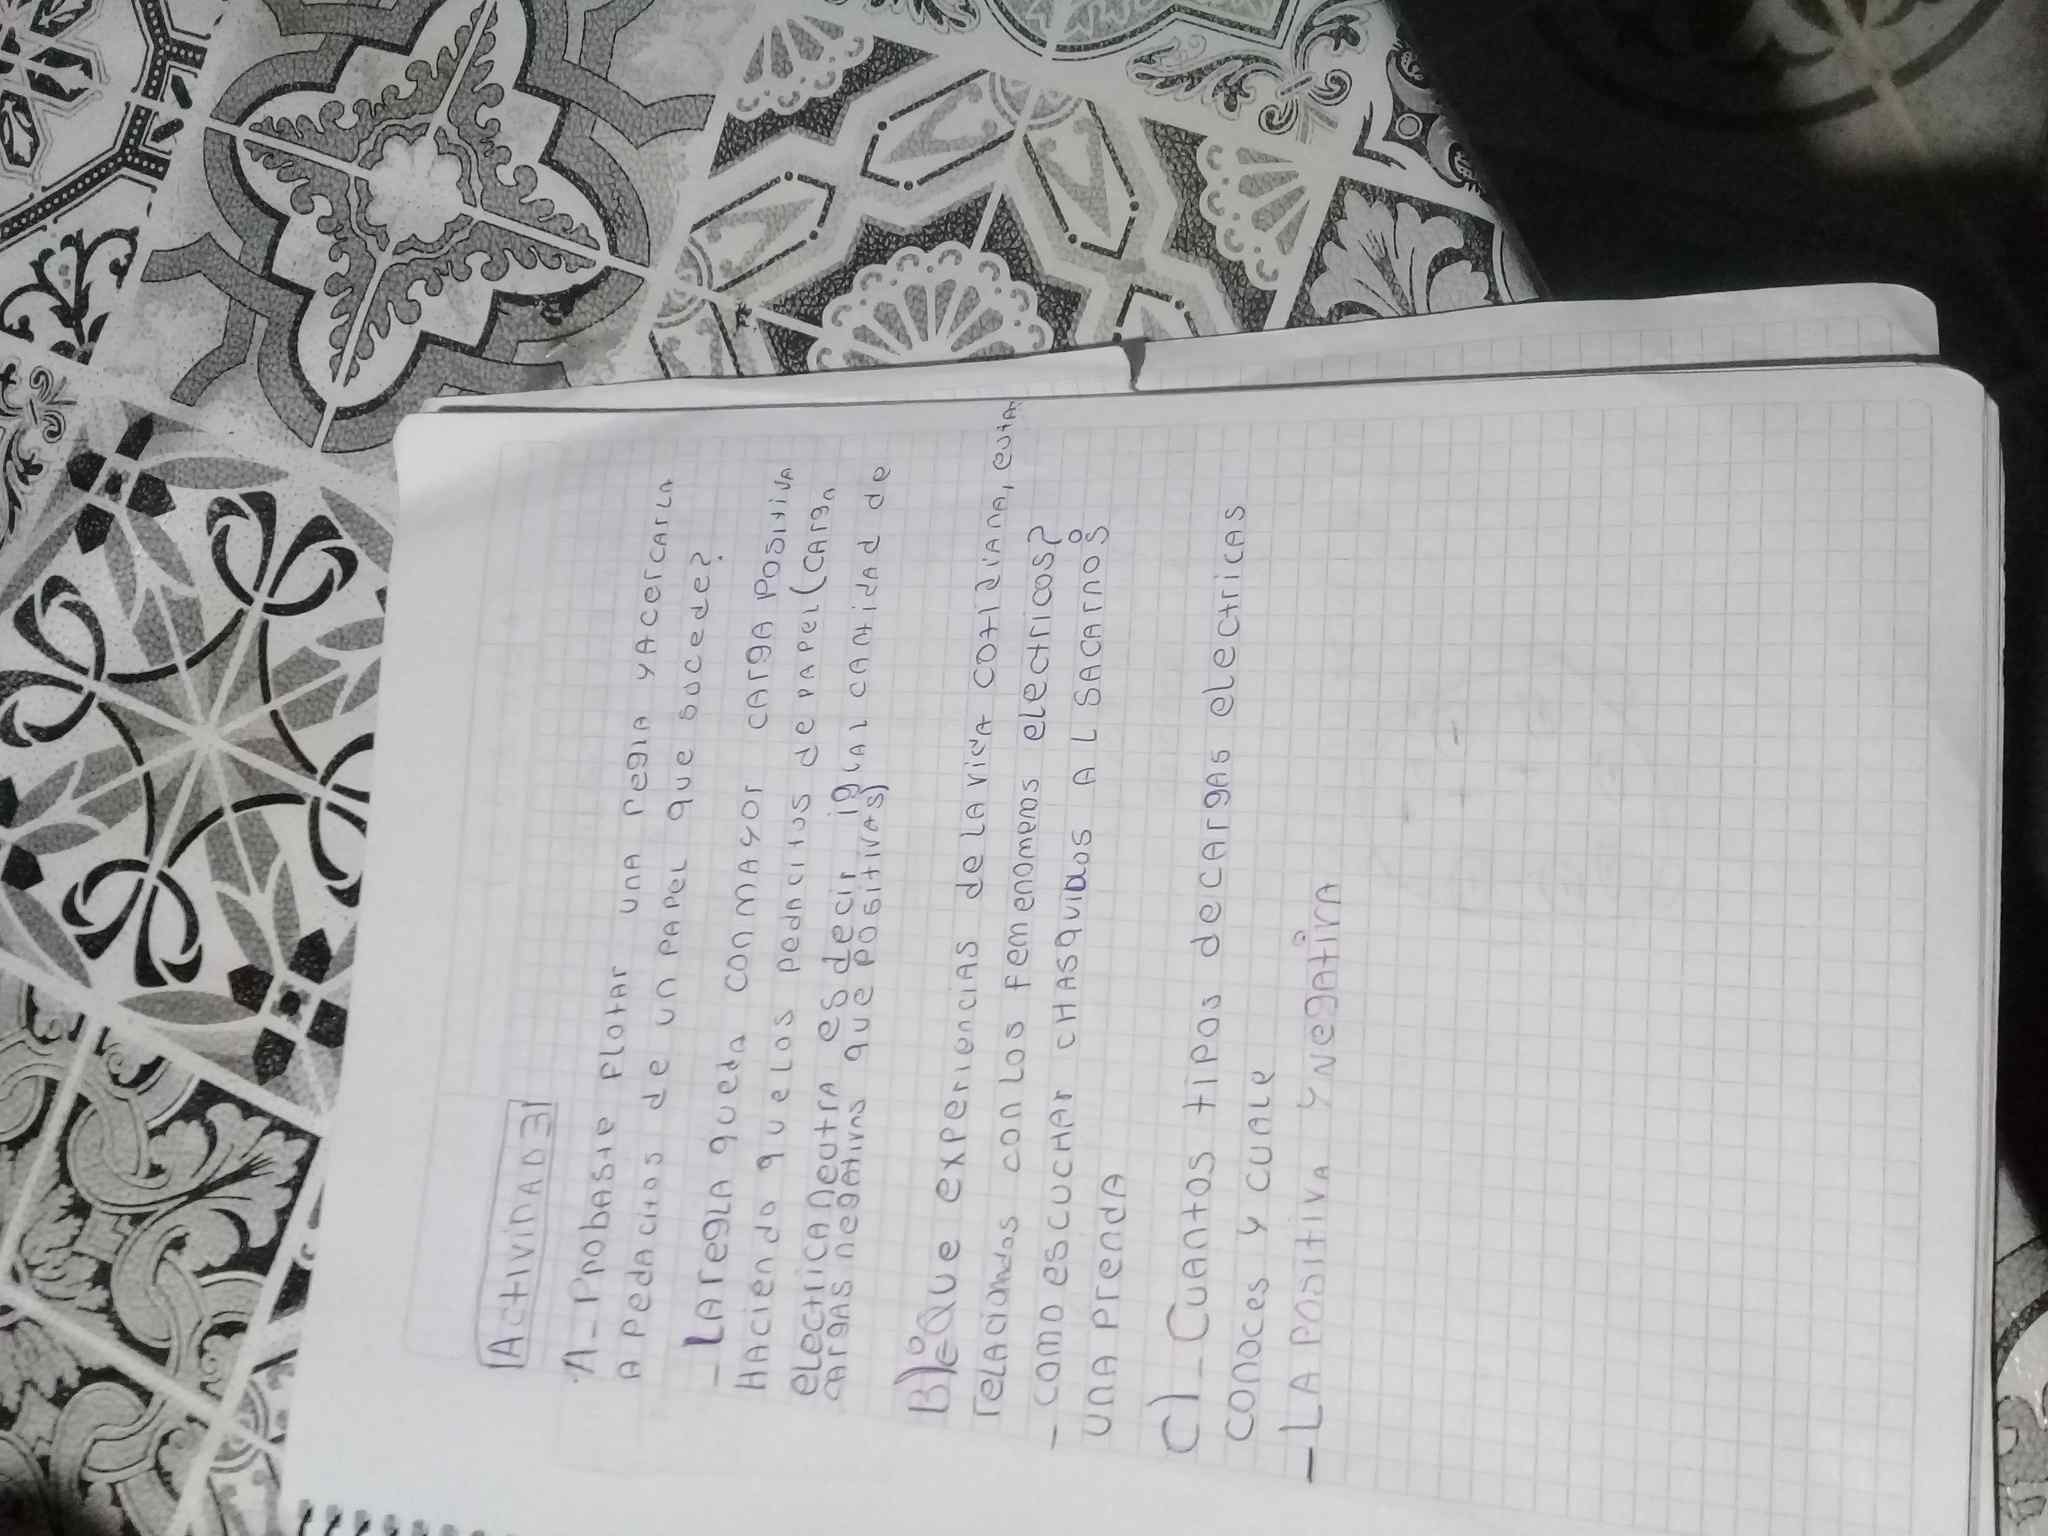 ACTIVIDAD 3
A - Probaste Flotar una regla y ACercarla
A Pedacitos de un PAPEL que sucede?
- LA regla queda con mayor carga Positiva
Haciendo que los pedacitos de papel (carga
electrica neutra es decir igual cantidad de
cargas negativas que positivas)
B) ¿Que experiencias de la vida cotidiana,
relacionados con los Femenomenos electricos?
- como escuchar chasquidos al sacarnos
una prenda
C) - Cuantos tipos de cargas electricas
conoces y cuale
- LA Positiva y Negativa